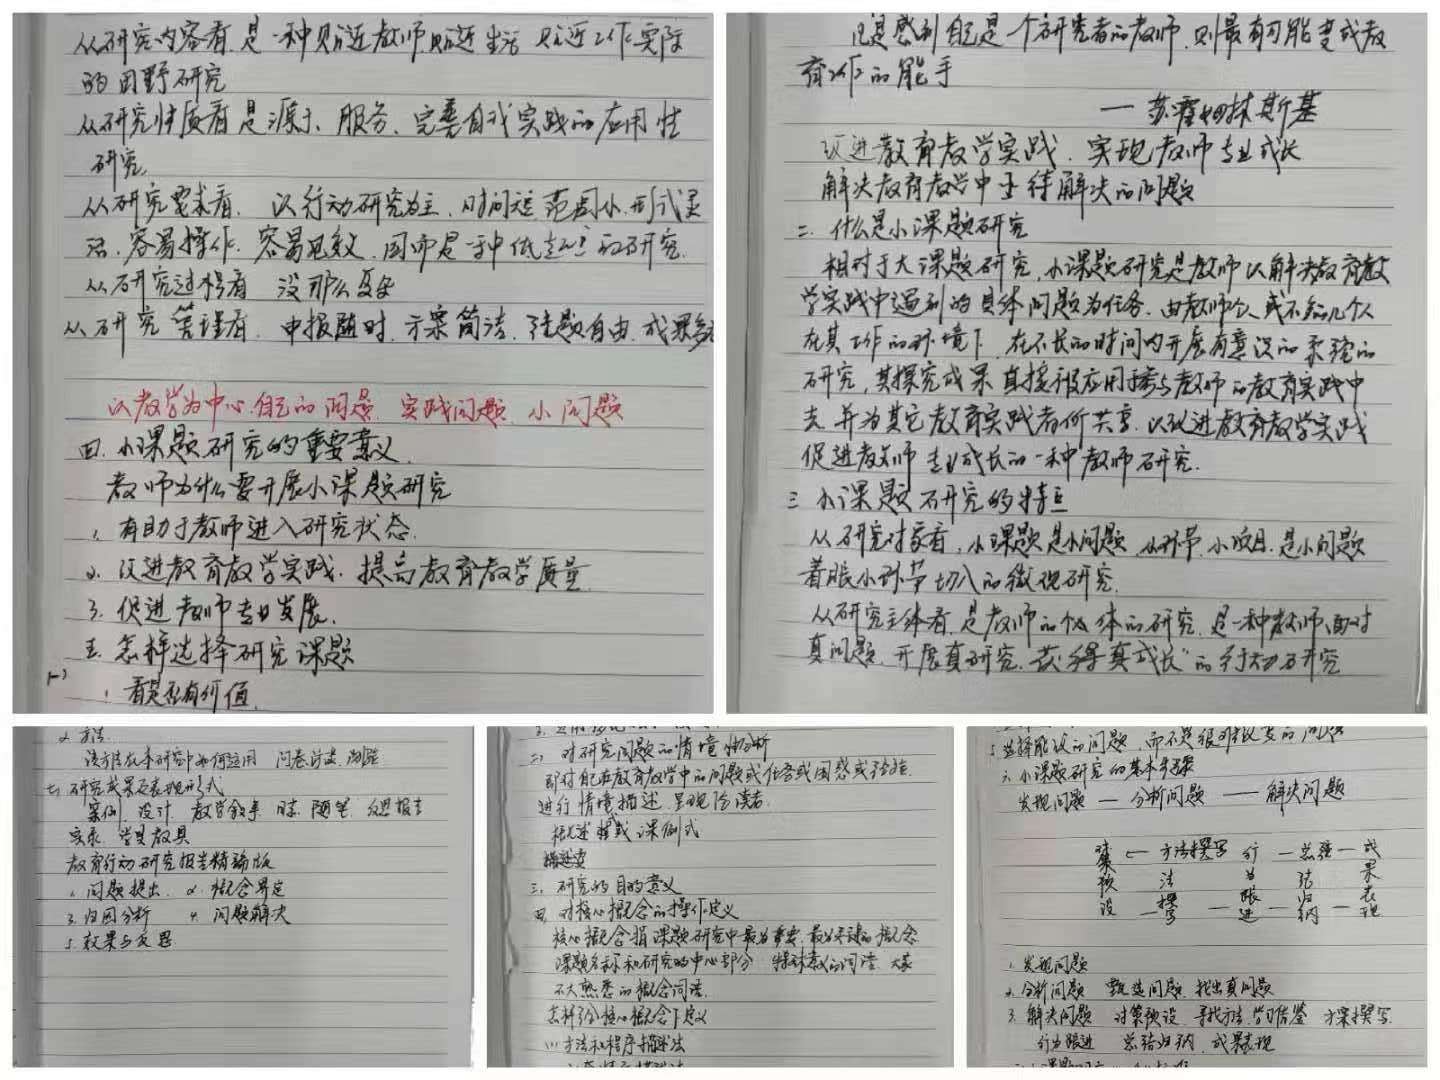 从研究内容看.是一种贴近教师贴近生活 贴近工作实际
的田野研究
从研究性质看是源于、服务、完善自我实践的应用性
研究
从研究要求看. 以行动研究为主.时间短.范围小.形式灵
活.容易操作.容易见效.因而是一种低起点的研究.
从研究过程看 没那么复杂
从研究管理看. 申报随时.方案简洁.结题自由.成果多
以教学为中心.自己的问题. 实践问题 小问题
四.小课题研究的重要意义.
教师为什么要开展小课题研究
1.有助于教师进入研究状态.
2.改进教育教学实践.提高教育教学质量.
3.促进教师专业发展.
五.怎样选择研究课题
(一)
1.看是否有价值.
凡是感到自己是一个研究者的教师.则最有可能变成教
育工作的能手
— 苏霍姆林斯基
改进教育教学实践.实现教师专业成长
解决教育教学中亟待解决的问题
二.什么是小课题研究
相对于大课题研究.小课题研究是教师以解决教育教
学实践中遇到的具体问题为任务.由教师个人或不多几个人
在其工作的环境下.在不长的时间内开展有意识的系统的
研究,其探究成果直接被应用于参与教师的教育实践中
去.并为其它教育实践者所共享.以改进教育教学实践
促进教师专业成长的一种教师研究.
三 小课题研究的特点
从研究对象看.小课题是小问题.小环节.小项目.是小问题
着眼小环节切入的微观研究.
从研究主体看.是教师的个体的研究.是一种教师面对
真问题.开展真研究.获得真成长"的行动研究
2.方法.
该方法在本研究中如何运用 问卷 访谈.测验
七.研究成果及表现形式
案例.设计.教学叙事.日志.随笔.反思报告
实录.学具教具
教育行动研究报告精简版
1.问题提出. 2.概念界定
3.归因分析 4.问题解决
5.效果与反思
二.对研究问题的情境性分析
即对自己在教育教学中的问题或任务或困惑或经验.
进行情境描述.呈现给读者.
概述式或课例式
三.研究的目的意义
四.对核心概念的操作定义
核心概念.指课题研究中最为重要.最为关键的概念
课题名称和研究的中心部分 特殊意义的词语.大家
不大熟悉的概念词语.
怎样给核心概念下定义
(1)方法和程序描述法
5.选择能议的问题.而不是很难改变的问题
六.小课题研究的基本步骤
发现问题 — 分析问题 — 解决问题
对策预设 方法撰写 行为跟进 总结归纳 成果表现
1.发现问题
2.分析问题 甄选问题.找出真问题
3.解决问题 对策预设.寻找方法.学习借鉴 方案撰写.
行为跟进 总结归纳.成果表现